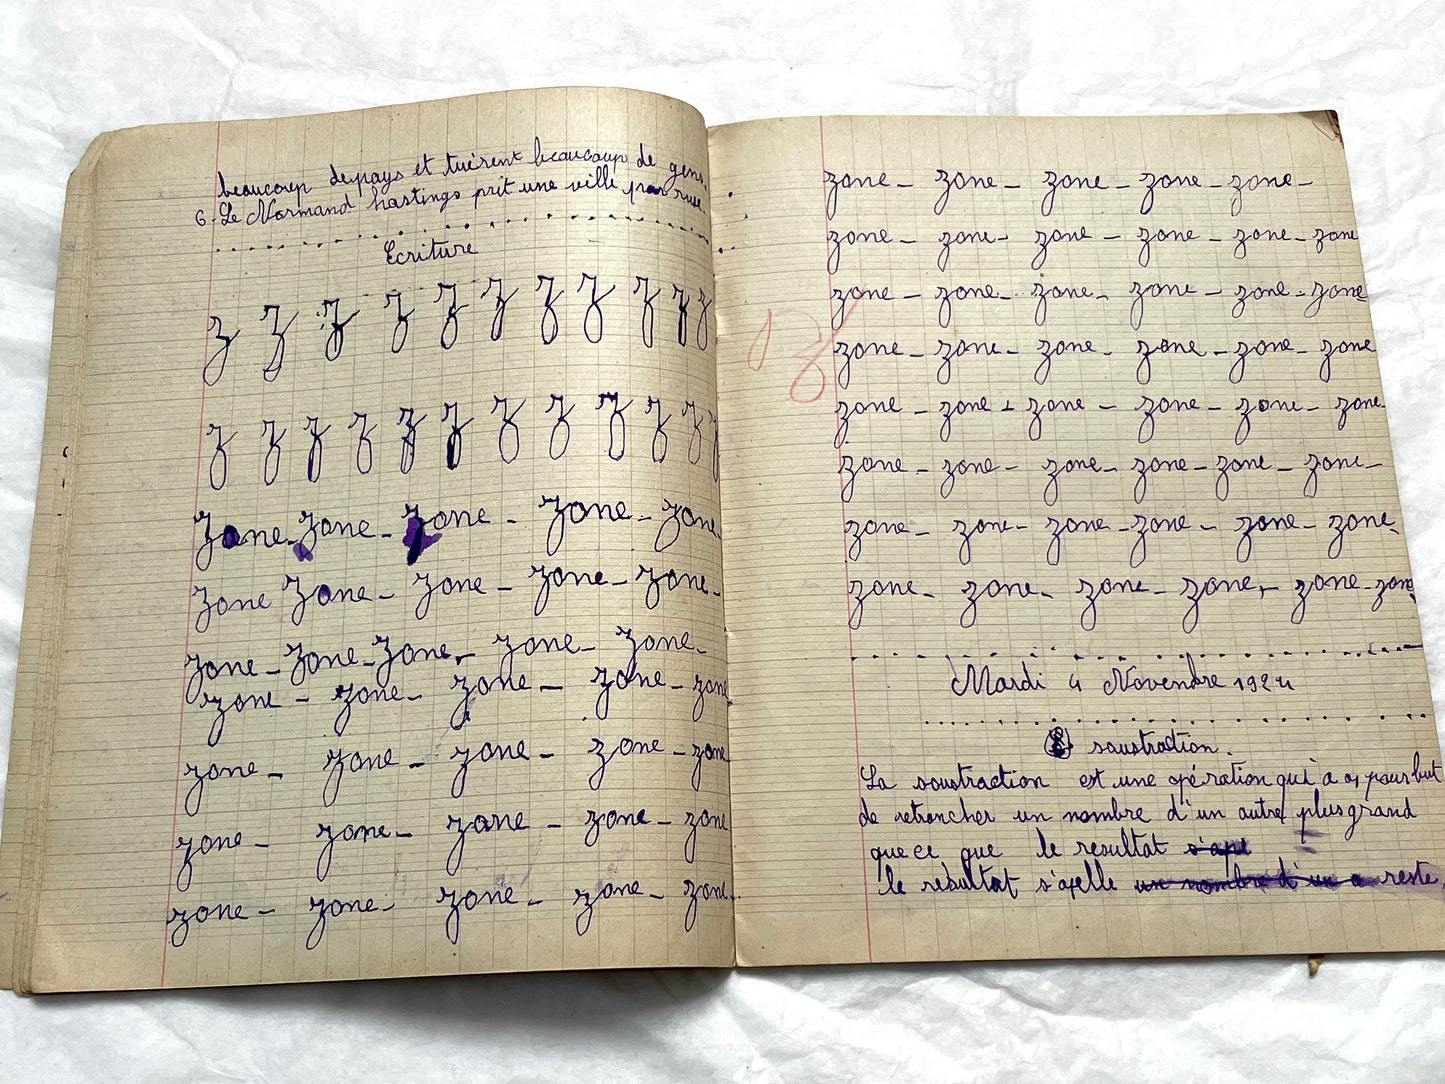 beaucoup de pays et tuèrent beaucoup de gens.
6. Le Normand hastings prit une ville par ruse.
Ecriture
z z z z z z z z z z z
z z z z z z z z z z z z
zone - zone - zone - zone - zone
zone zone - zone - zone - zone -
zone - zone - zone - zone - zone -
zone - zone - zone - zone - zone
zone - zone - zone - zone - zone
zone - zone - zone - zone - zone
zone - zone - zone - zone - zone
zone - zone - zone - zone - zone -
zone - zone - zone - zone - zone - zone
zone - zone - zone - zone - zone - zone
zone - zone - zone - zone - zone - zone
zone - zone - zone - zone - zone - zone
zone - zone - zone - zone - zone - zone -
zone - zone - zone - zone - zone - zone
zone - zone - zone - zone - zone - zone
Mardi 4 Novendre 1924
soustraction.
La soustraction est une opération qui a pour but
de retrancher un nombre d'un autre plus grand
que ce que le resultat s'ape
le résultat s'apelle un nombre d'un a reste